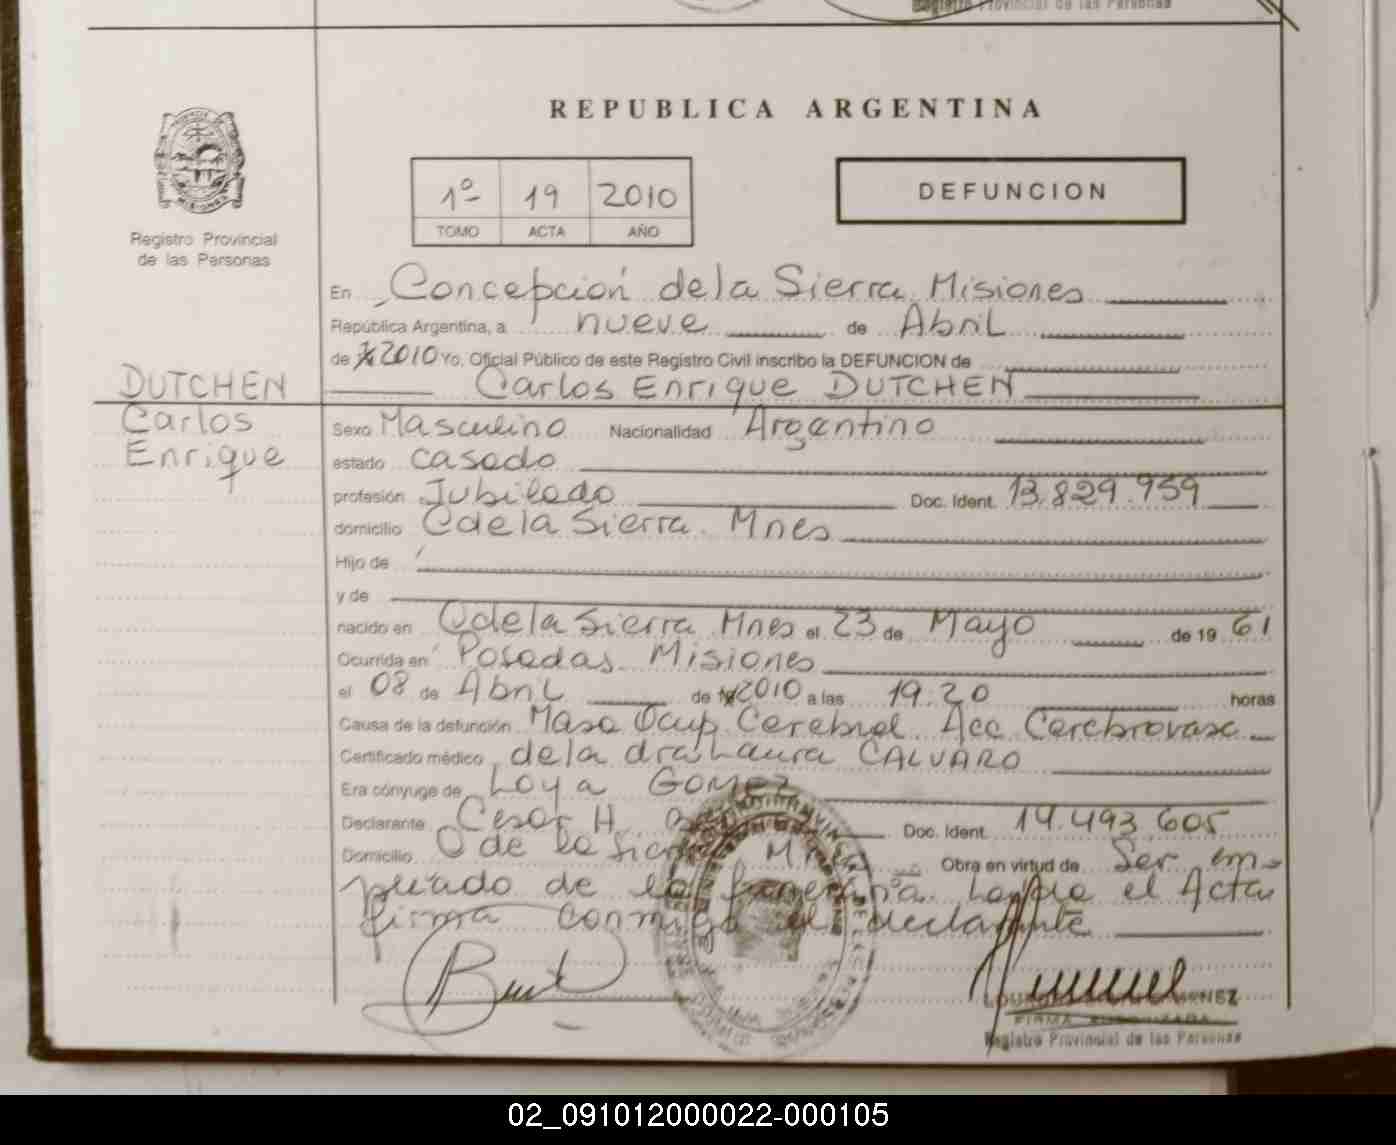 Registro Provincial de las Personas
REPUBLICA ARGENTINA
1º 19 2010
TOMO ACTA AÑO
DEFUNCION
Registro Provincial
de las Personas
En Concepción de la Sierra Misiones
República Argentina, a nueve de Abril
de 2010 Yo, Oficial Público de este Registro Civil inscribo la DEFUNCION de
Carlos Enrique DUTCHEN
DUTCHEN
Carlos
Enrique
Sexo Masculino Nacionalidad Argentino
estado casado
profesión Jubilado Doc. Ident. 13.829.959
domicilio C de la Sierra. Mnes
Hijo de
y de
nacido en C de la Sierra Mnes el 23 de Mayo de 19 61
Ocurrida en Posadas Misiones
el 08 de Abril de 2010 a las 19.20 horas
Causa de la defunción Masa Ocup Cerebral Acc Cerebrovasc
Certificado médico de la dra Laura CALVARO
Era cónyuge de Loya GOMEZ
Declarante Cesar H. Doc. Ident. 14.493.605
Domicilio C de la Sierra Mnes Obra en virtud de Ser em-
pleado de la funeraria el Acta
firma conmigo el declarante
FIRMA AUTORIZADA
Registro Provincial de las Personas
02_091012000022-000105